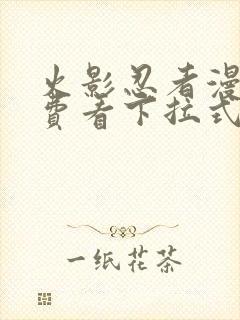 火影忍者漫
费看下拉式
一纸花茶